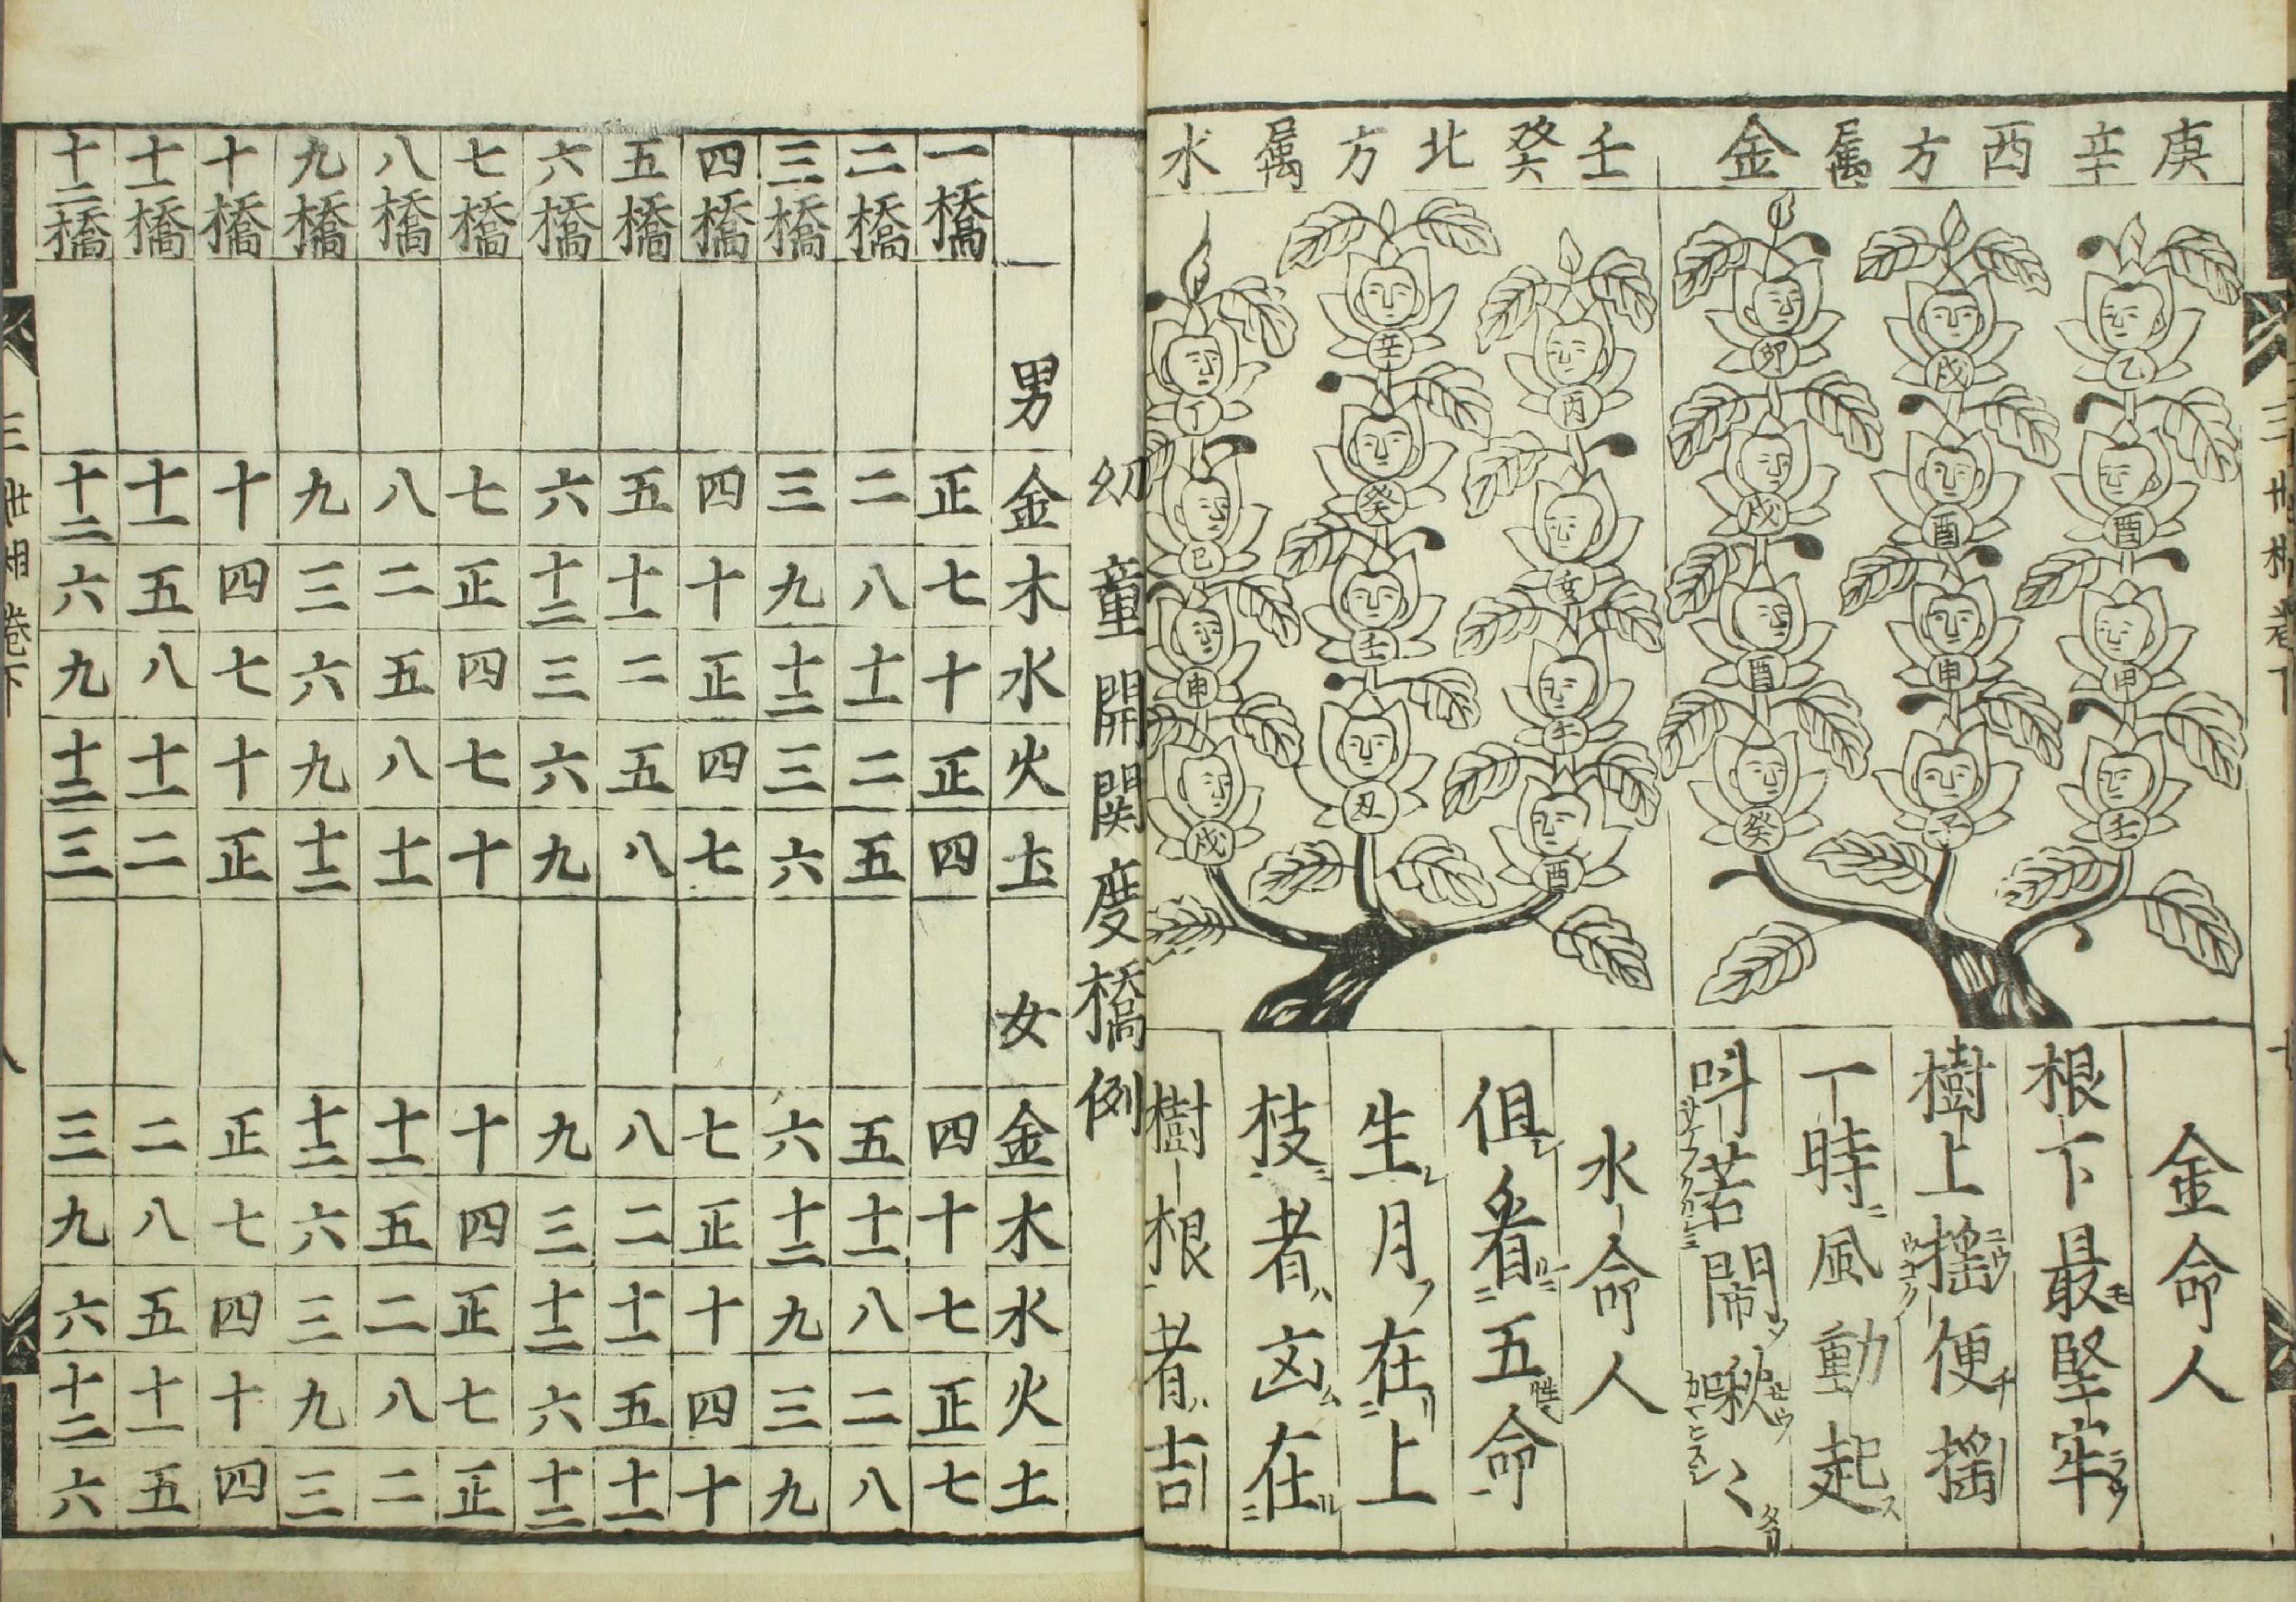 三世相卷下
庚辛西方属金
乙 酉 甲 壬
戌 酉 申 子
卯 戌 酉 癸
金命人
根下最堅牢
樹上揺便揺
一時風動起
呌苦閙啾〻
壬癸北方属水
丙 亥 午 酉
辛 癸 壬 丑
丁 巳 申 戌
水命人
但看五命
生月在上
枝者凶在
樹根者吉
幼童開関度橋例
一 男 金 木 水 火 土 女 金 木 水 火 土
一橋 正 七 十 正 四 四 十 七 正 七
二橋 二 八 十一 二 五 五 十一 八 二 八
三橋 三 九 十二 三 六 六 十二 九 三 九
四橋 四 十 正 四 七 七 正 十 四 十
五橋 五 十一 二 五 八 八 二 十一 五 十一
六橋 六 十二 三 六 九 九 三 十二 六 十二
七橋 七 正 四 七 十 十 四 正 七 正
八橋 八 二 五 八 十一 十一 五 二 八 二
九橋 九 三 六 九 十二 十二 六 三 九 三
十橋 十 四 七 十 正 正 七 四 十 四
十一橋 十一 五 八 十一 二 二 八 五 十一 五
十二橋 十二 六 九 十二 三 三 九 六 十二 六
三世相卷下